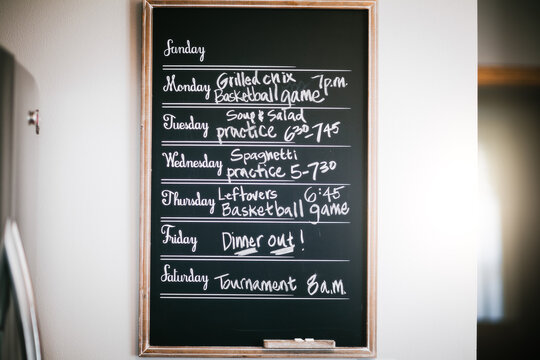 Sunday
Monday Grilled chix 7p.m.
Basketball game
Tuesday Soup & Salad
practice 6:30-7:45
Wednesday Spaghetti
practice 5-7:30
Thursday Leftovers 6:45
Basketball game
Friday Dinner out!
Saturday Tournament 8 a.m.